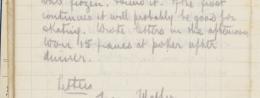 was frozen, found it. The frost
continues it will probably be good for
skating. Wrote letters in the afternoon
Won 15 francs at poker after
dinner.
Letters